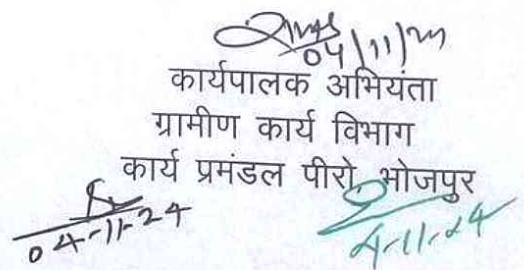 04/11/24
कार्यपालक अभियंता
ग्रामीण कार्य विभाग
कार्य प्रमंडल पीरो, भोजपुर
04-11-24
4-11-24